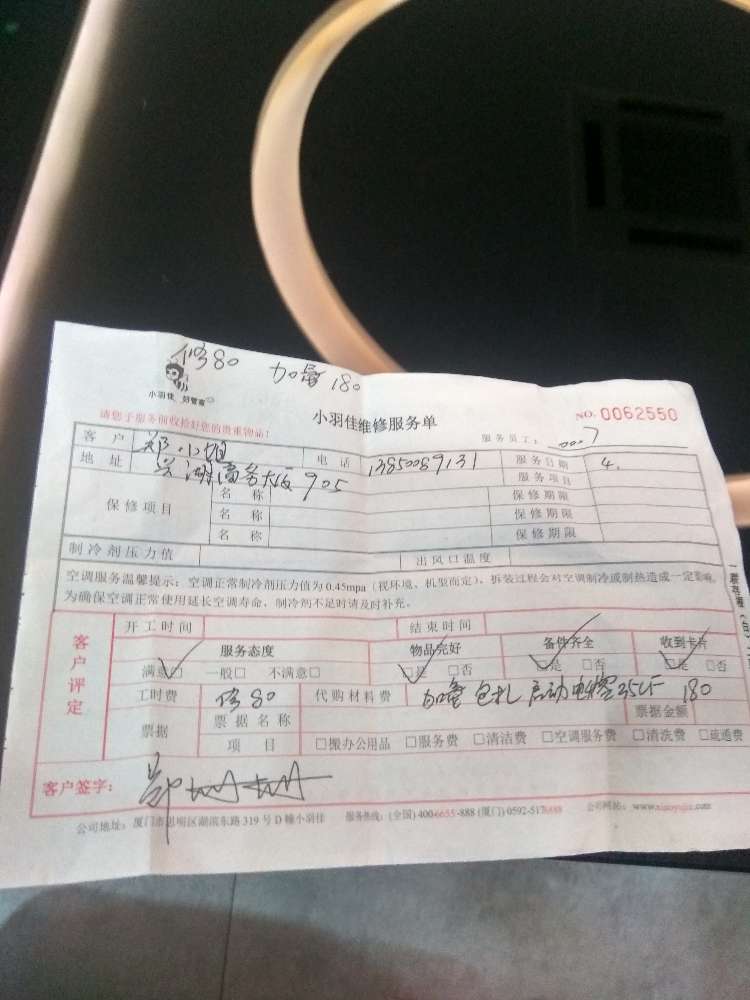 修80 加雪180
小羽佳 好管家
小羽佳维修服务单
NO. 0062550
请您于服务前收拾好您的贵重物品!
服务员工:
客户 郑小姐 电话 13850089131 服务日期 4.
地址 湖商务大 905 服务项目
保修项目 名称 保修期限
名称 保修期限
名称 保修期限
制冷剂压力值 出风口温度
空调服务温馨提示:空调正常制冷剂压力值为0.45mpa(视环境、机型而定)、拆装过程会对空调制冷或制热造成一定影响,
为确保空调正常使用延长空调寿命,制冷剂不足时请及时补充。
开工时间 结束时间
客户评定
服务态度 物品完好 备件齐全 收到卡片
满意□ 一般□ 不满意□ □是 □否 □是 □否 □是 □否
工时费 修80 代购材料费 加雪 包扎 启动电容35UF 180
票据 票据名称 票据金额
项目 □搬办公用品 □服务费 □清洁费 □空调服务费 □清洗费 □疏通费
客户签字: 郑
公司地址:厦门市思明区湖滨东路319号D幢小羽佳 服务热线:(全国)400-6655-888 (厦门)0592-517 公司网站:www.xiaoyujia.com